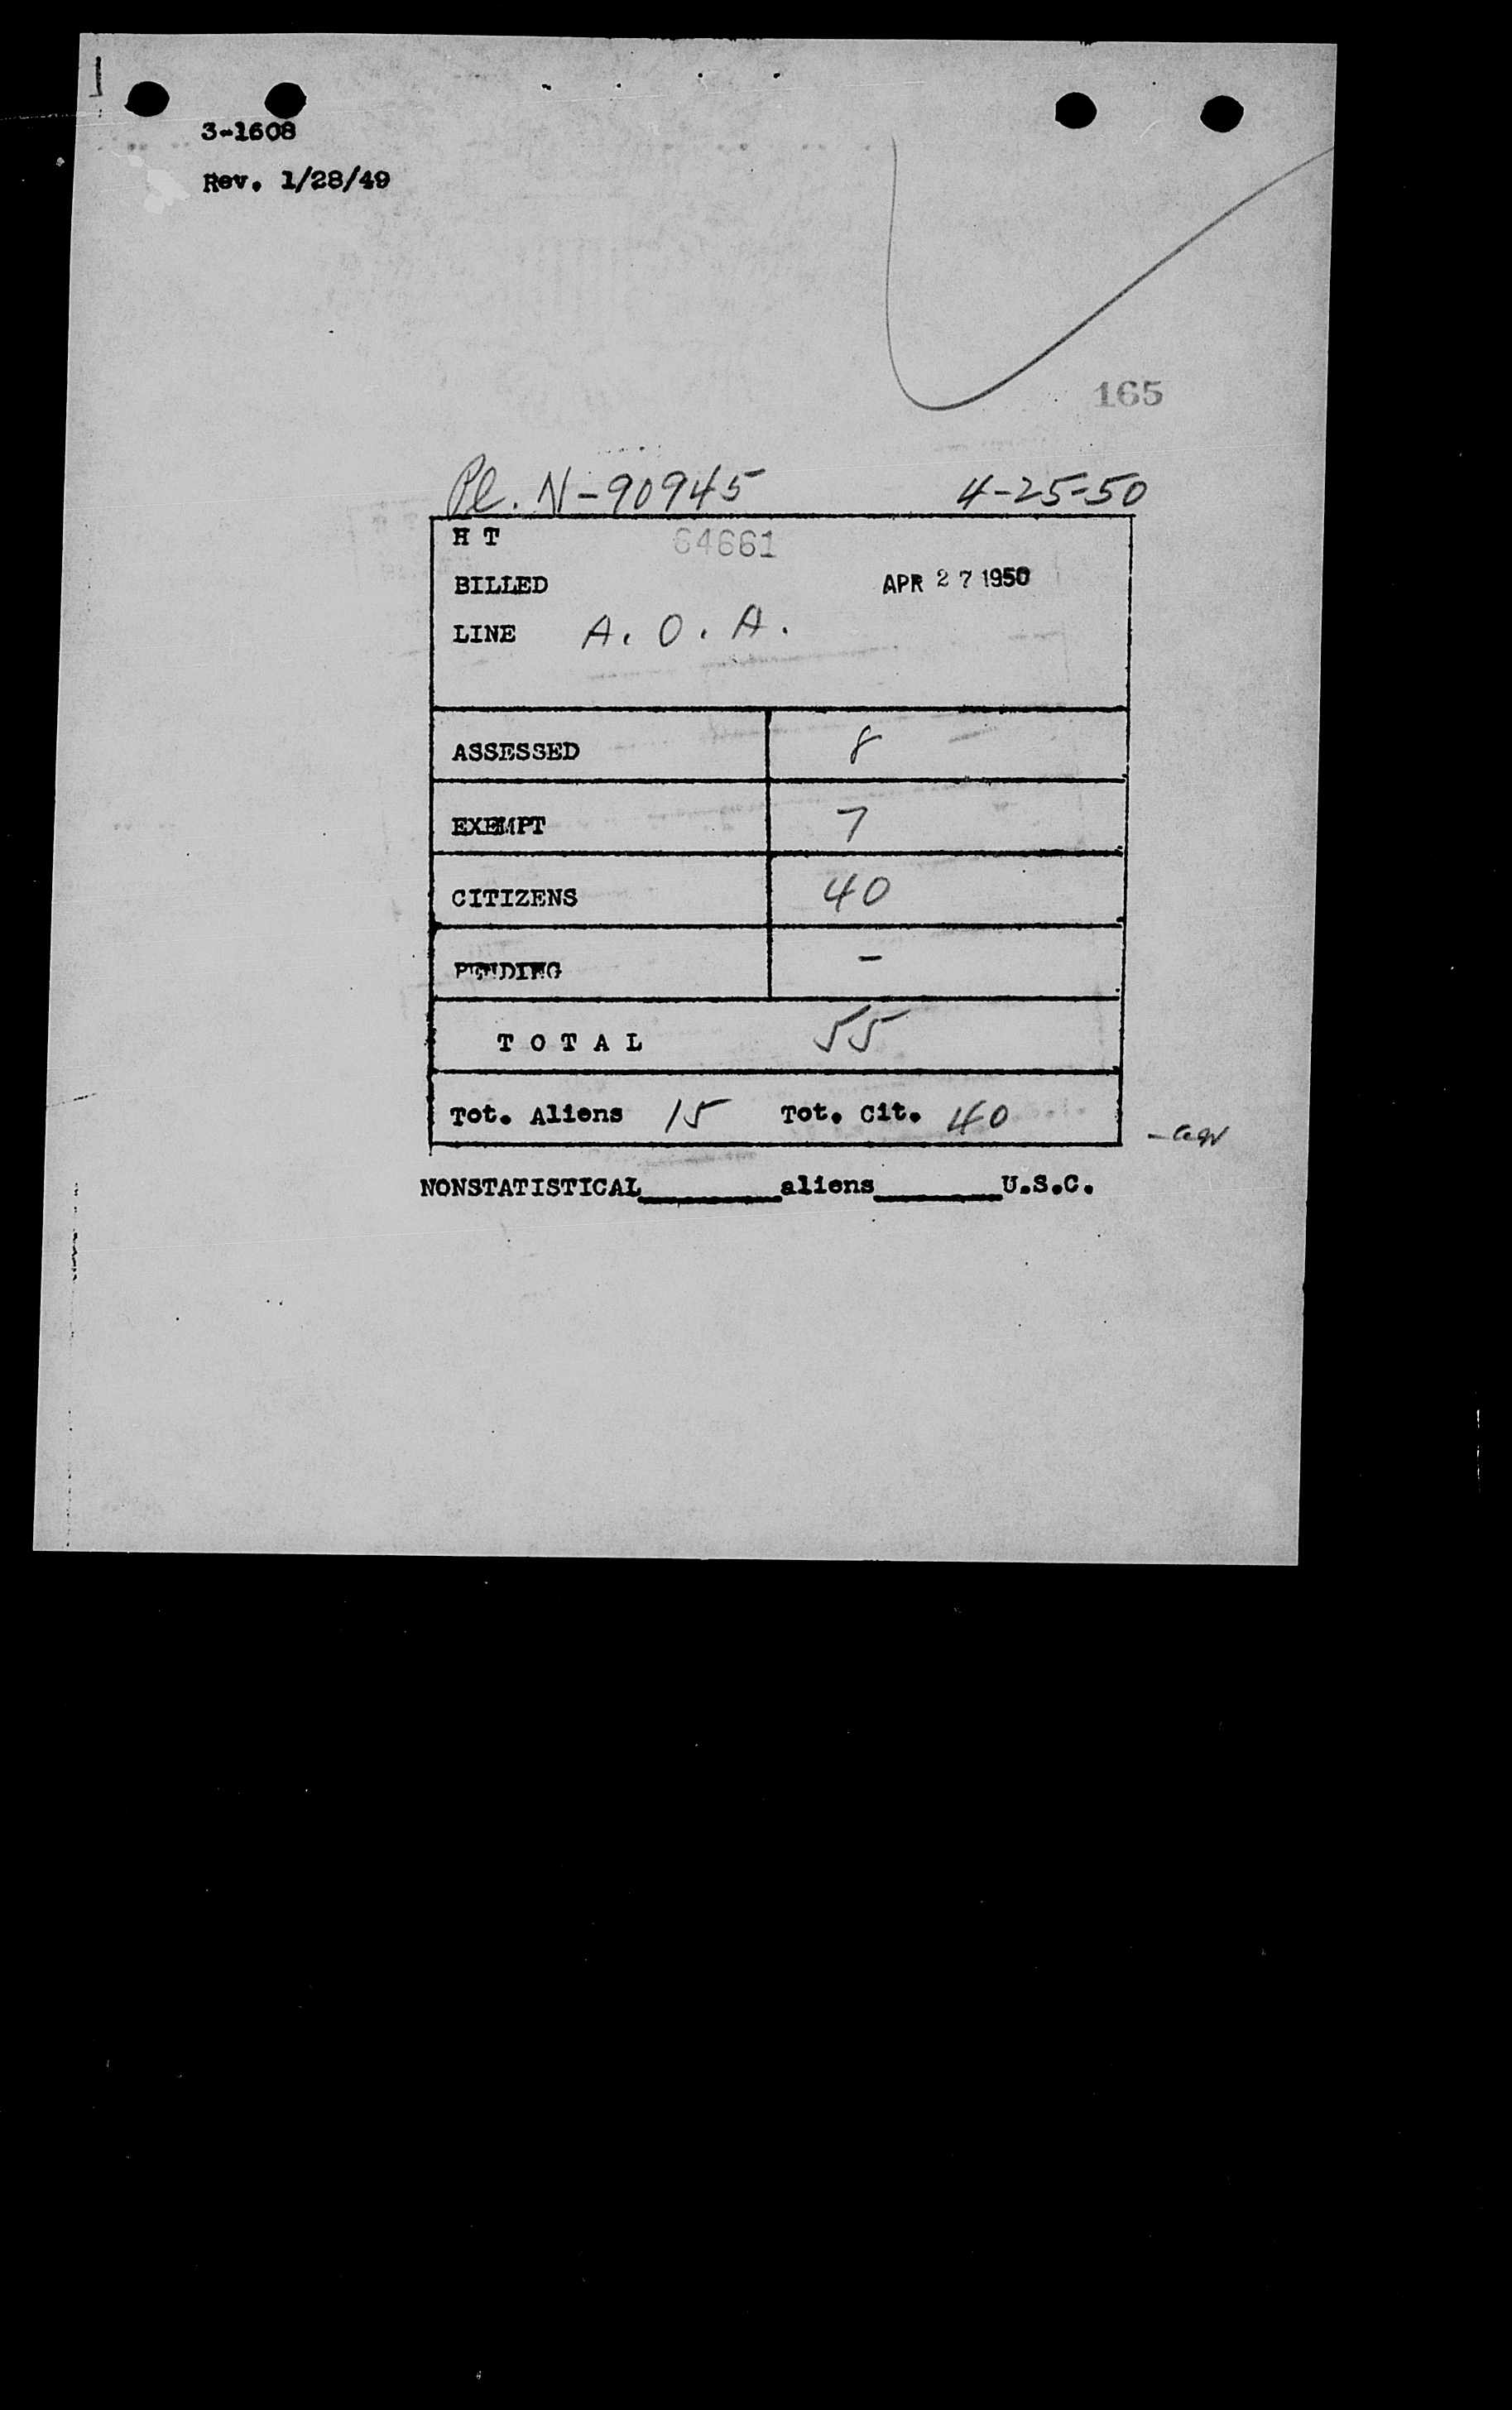 3-1608
Rev. 1/28/49
165
Pl. N-90945 4-25-50
H T 64661
BILLED APR 27 1950
LINE A. O. A.
ASSESSED 8
EXEMPT 7
CITIZENS 40
PENDING -
T O T A L 55
Tot. Aliens 15 Tot. Cit. 40
NONSTATISTICAL________aliens________U.S.C.